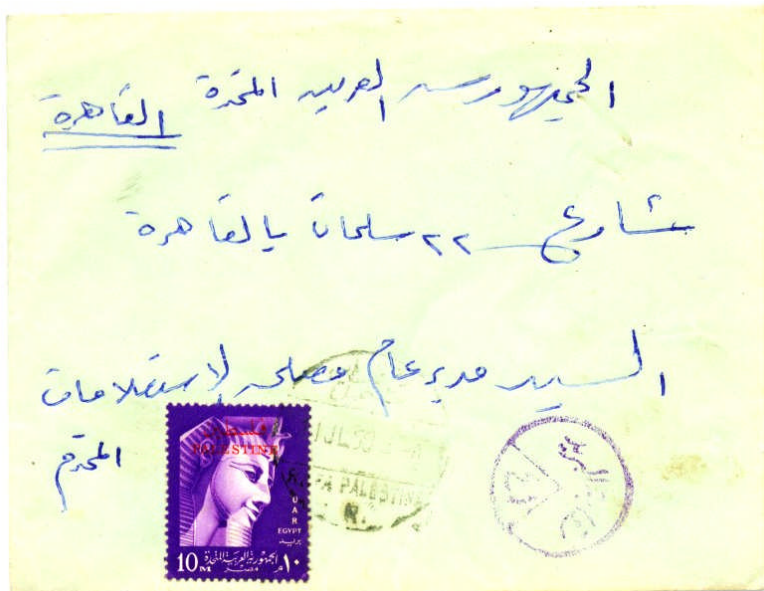 الجمهورية العربيه المتحدة القاهرة
شارع ٢٢ سليمان بالقاهرة
السيد مدير عام مصلحه الإستعلامات
المحترم
فلسطين
PALESTINE
UAR
EGYPT
بريد
الجمهورية العربية المتحدة
10 M مصر ١٠ م